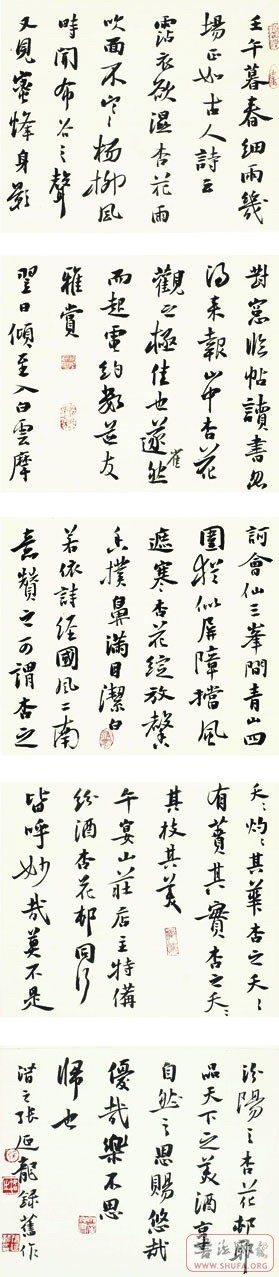 壬午暮春細雨幾
場正如古人詩云
霑衣欲濕杏花雨
吹面不寒楊柳風
時聞布谷之聲
又見蜜蜂身影
對窓臨帖讀書忽
得来報山中杏花
觀之極佳也遂雀然
而起電約數芸友
雅賞
翌日傾至入白雲摩
訶會仙三峯間青山四
圍猶似屏障擋風
遮寒杏花綻放馨
香撲鼻滿目潔白
若依詩經國風二南
意贊之可謂杏之
夭夭灼灼其華杏之夭夭
有蕡其實杏之夭夭
其枝其美
午宴山莊店主特備
汾酒杏花邨同行
皆呼妙哉莫不是
汾陽之杏花邨耶
品天下之美酒享
自然之恩賜悠哉
優哉樂不思
歸也
浩之張延龍錄舊作
書法報
WWW.SHUFA.ORG